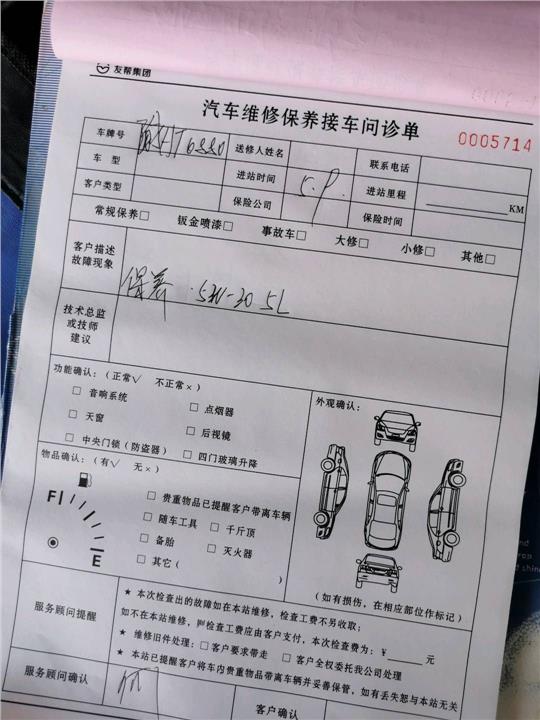 友帮集团
汽车维修保养接车问诊单
0005714
车牌号 送修人姓名 联系电话
车 型 进站时间 5.9. 进站里程 KM
客户类型 保险公司 保险时间
常规保养□ 钣金喷漆□ 事故车□ 大修□ 小修□ 其他□
客户描述
故障现象
保养 5W-30 5L
技术总监
或技师
建议
功能确认：（正常√ 不正常×）
□ 音响系统 □ 点烟器
□ 天窗 □ 后视镜
□ 中央门锁（防盗器） □ 四门玻璃升降
外观确认：
物品确认：（有√ 无×）
F
E
□ 贵重物品已提醒客户带离车辆
□ 随车工具 □ 千斤顶
□ 备胎 □ 灭火器
□ 其它（ ）
（如有损伤，在相应部位作标记）
服务顾问提醒
★ 本次检查出的故障如在本站维修，检查工费不另收取；
如不在本站维修，则检查工费应由客户支付，本次检查费为：￥ 元
★ 维修旧件处理：□ 客户要求带走 □ 客户全权委托我公司处理
★ 本站已提醒客户将车内贵重物品带离车辆并妥善保管，如有丢失恕与本站无关
服务顾问确认 客户确认